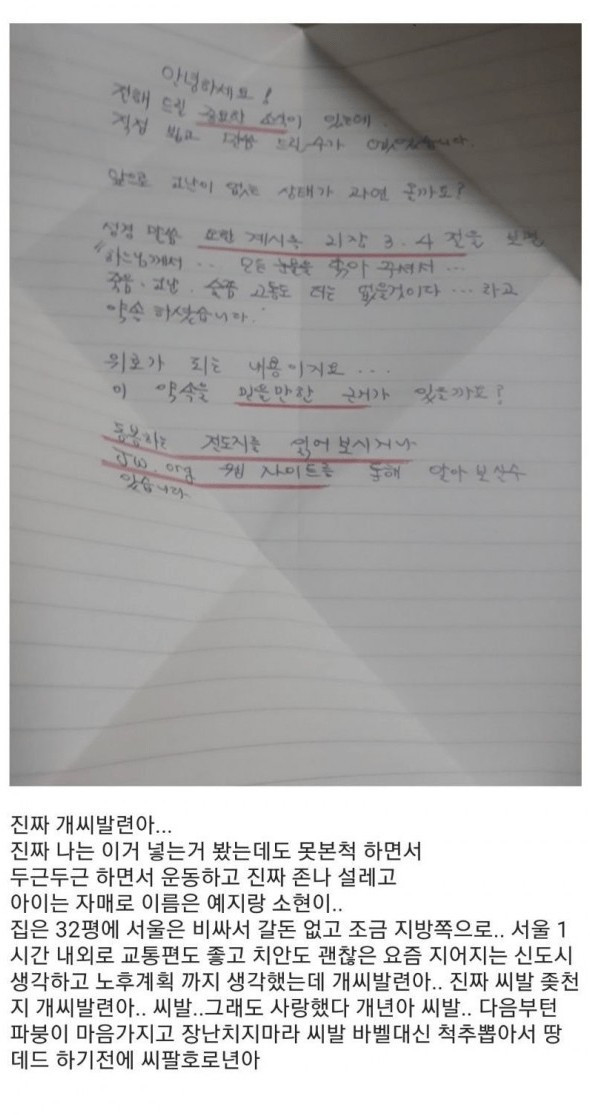 안녕하세요!
전해 드릴 중요한 소식이 있는데,
직접 뵙고 말씀 드릴 수가 없었습니다.
앞으로 고난이 없는 상태가 과연 올까요?
성경 말씀 요한 계시록 21장 3.4 절을 보면
"하느님께서.. 모든 눈물을 닦아 주셔서...
죽음, 고난, 슬픔 고통도 더는 없을것이다...라고
약속 하셨습니다.
위로가 되는 내용이지요...
이 약속을 믿을만한 근거가 있을까요?
동봉하는 전도지를 읽어 보시거나
JW.org 웹 사이트를 통해 알아 보실수
있습니다
진짜 개씨발련아...
진짜 나는 이거 넣는거 봤는데도 못본척 하면서
두근두근 하면서 운동하고 진짜 존나 설레고
아이는 자매로 이름은 예지랑 소현이..
집은 32평에 서울은 비싸서 갈돈 없고 조금 지방쪽으로.. 서울 1
시간 내외로 교통편도 좋고 치안도 괜찮은 요즘 지어지는 신도시
생각하고 노후계획 까지 생각했는데 개씨발련아.. 진짜 씨발 좆천
지 개씨발련아.. 씨발..그래도 사랑했다 개년아 씨발.. 다음부턴
파붕이 마음가지고 장난치지마라 씨발 바벨대신 척추뽑아서 땅
데드 하기전에 씨팔호로년아